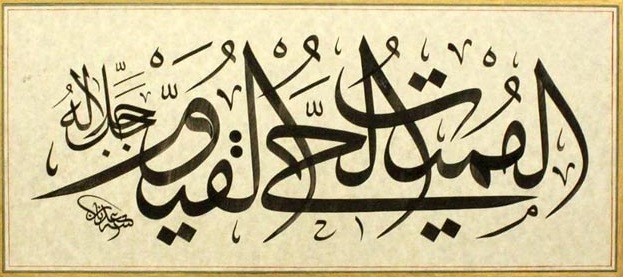 المميت الحي القيوم جل جلاله